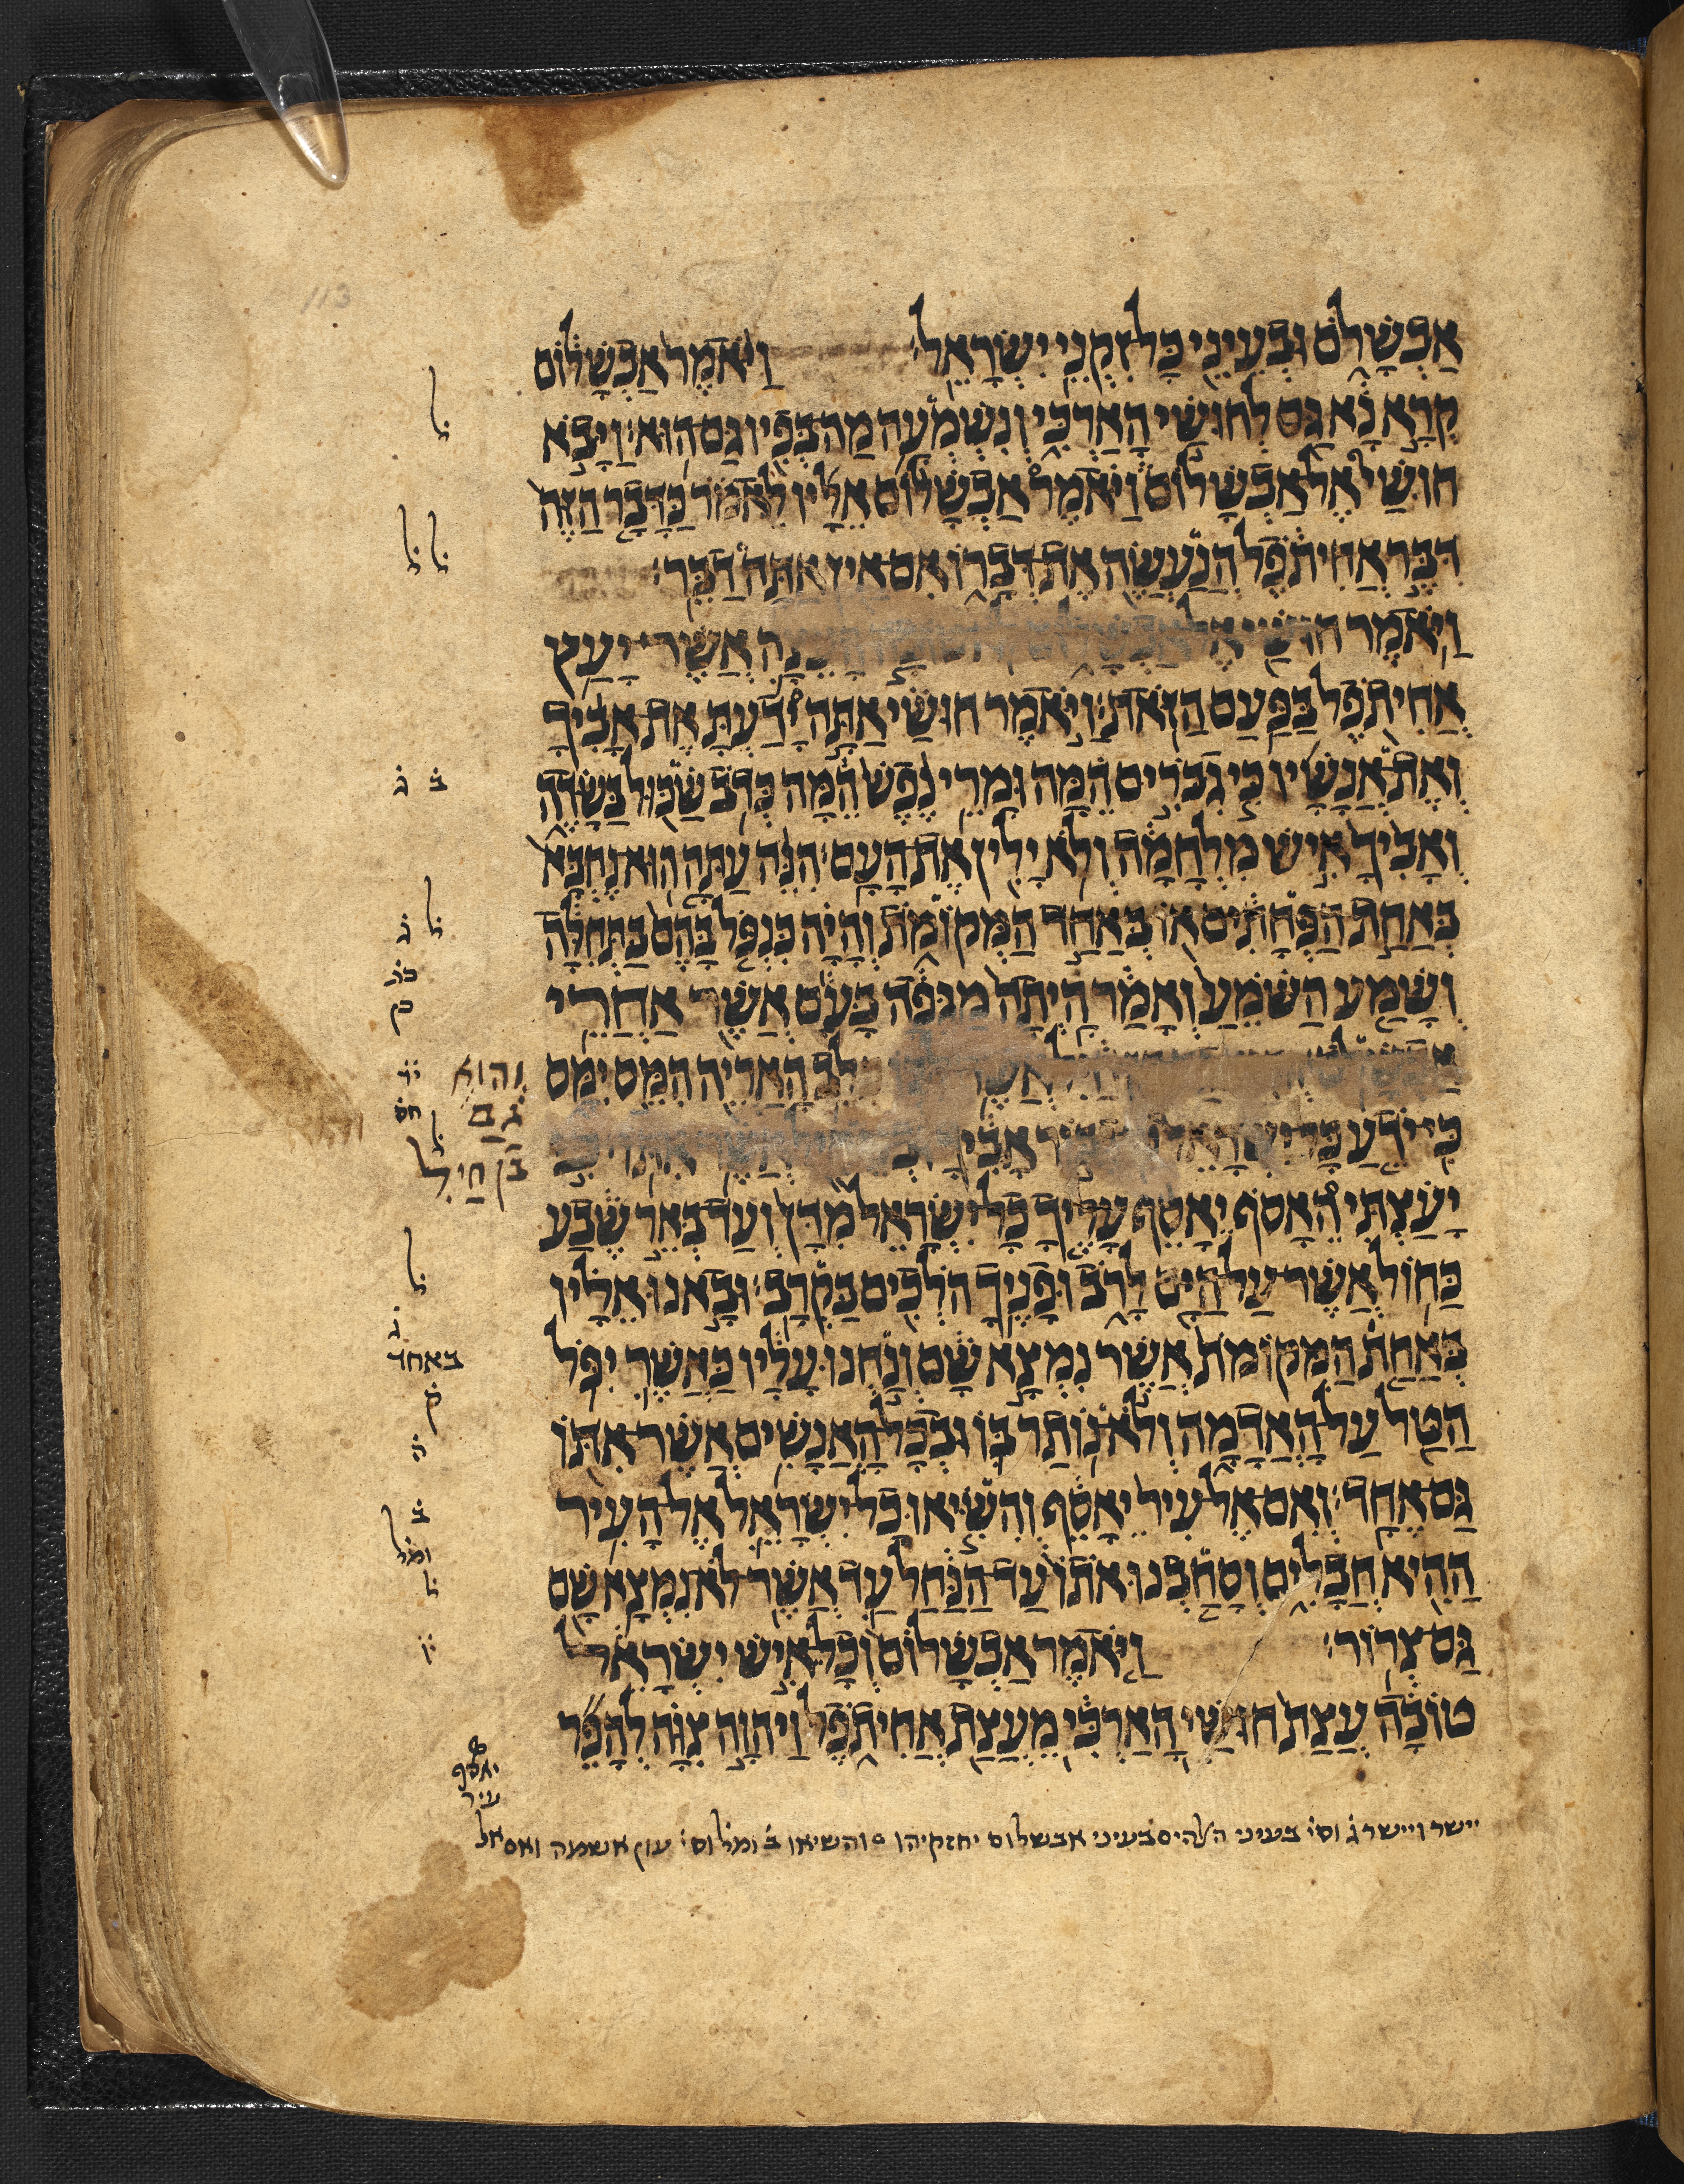 אַבְשָׁלֹם וּבְעֵינֵי כָּל זִקְנֵי יִשְׂרָאֵל׃ וַיֹּאמֶר אַבְשָׁלוֹם
קְרָא נָא גַּם לְחוּשַׁי הָאַרְכִּי וְנִשְׁמְעָה מַה בְּפִיו גַּם הוּא׃ וַיָּבֹא
חוּשַׁי אֶל אַבְשָׁלוֹם וַיֹּאמֶר אַבְשָׁלוֹם אֵלָיו לֵאמֹר כַּדָּבָר הַזֶּה
דִּבֶּר אֲחִיתֹפֶל הֲנַעֲשֶׂה אֶת דְּבָרוֹ אִם אַיִן אַתָּה דַבֵּר׃
וַיֹּאמֶר חוּשַׁי אֶל אֲשֶׁר יָעַץ
אֲחִיתֹפֶל בַּפַּעַם הַזֹּאת׃ וַיֹּאמֶר חוּשַׁי אַתָּה יָדַעְתָּ אֶת אָבִיךָ
וְאֶת אֲנָשָׁיו כִּי גִבֹּרִים הֵמָּה וּמָרֵי נֶפֶשׁ הֵמָּה כְּדֹב שַׁכּוּל בַּשָּׂדֶה
וְאָבִיךָ אִישׁ מִלְחָמָה וְלֹא יָלִין אֶת הָעָם׃ הִנֵּה עַתָּה הוּא נֶחְבָּא
בְּאַחַת הַפְּחָתִים אוֹ בְּאַחַד הַמְּקוֹמֹת וְהָיָה כִּנְפֹל בָּהֶם בַּתְּחִלָּה
וְשָׁמַע הַשֹּׁמֵעַ וְאָמַר הָיְתָה מַגֵּפָה בָּעָם אֲשֶׁר אַחֲרֵי
אֲשֶׁר כְּלֵב הָאַרְיֵה הִמֵּס יִמָּס
כִּי יֹדֵעַ כָּל יִשְׂרָאֵל אָבִיךָ אֲשֶׁר אִתּוֹ׃ כִּי
יָעַצְתִּי הֵאָסֹף יֵאָסֵף עָלֶיךָ כָל יִשְׂרָאֵל מִדָּן וְעַד בְּאֵר שֶׁבַע
כַּחוֹל אֲשֶׁר עַל הַיָּם לָרֹב וּפָנֶיךָ הֹלְכִים בַּקְרָב׃ וּבָאנוּ אֵלָיו
בְּאַחַת הַמְּקוֹמֹת אֲשֶׁר נִמְצָא שָׁם וְנַחְנוּ עָלָיו כַּאֲשֶׁר יִפֹּל
הַטַּל עַל הָאֲדָמָה וְלֹא נוֹתַר בּוֹ וּבְכָל הָאֲנָשִׁים אֲשֶׁר אִתּוֹ
גַּם אֶחָד׃ וְאִם אֶל עִיר יֵאָסֵף וְהִשִּׂיאוּ כָל יִשְׂרָאֵל אֶל הָעִיר
הַהִיא חֲבָלִים וְסָחַבְנוּ אֹתוֹ עַד הַנַּחַל עַד אֲשֶׁר לֹא נִמְצָא שָׁם
גַּם צְרוֹר׃ וַיֹּאמֶר אַבְשָׁלוֹם וְכָל אִישׁ יִשְׂרָאֵל
טוֹבָה עֲצַת חוּשַׁי הָאַרְכִּי מֵעֲצַת אֲחִיתֹפֶל וַיהוָה צִוָּה לְהָפֵר
ל
ל ל
ב ג
ל ג
וְהוּא
גַם
בֶּן חַיִל
ל
ג
באחד
ק
ה
ב
ומל
ל
יאסף
עיר
יישר ויישר ג וס׳ בעיני האלהים בעיני אבשלום יחזקיהו ○ והשיאו ב ומל וס׳ עון אשמה ואם אל
113